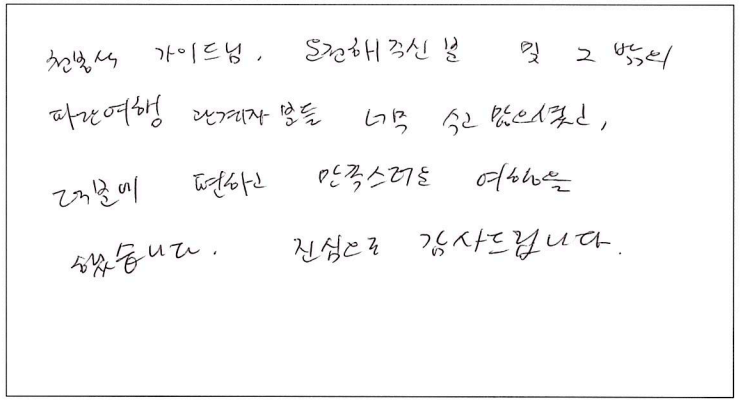 천봉석 가이드님, 운전해주신 분 및 그 밖의
파란여행 관계자 분들 너무 수고 많으셨고,
덕분에 편하고 만족스러운 여행을
했습니다. 진심으로 감사드립니다.